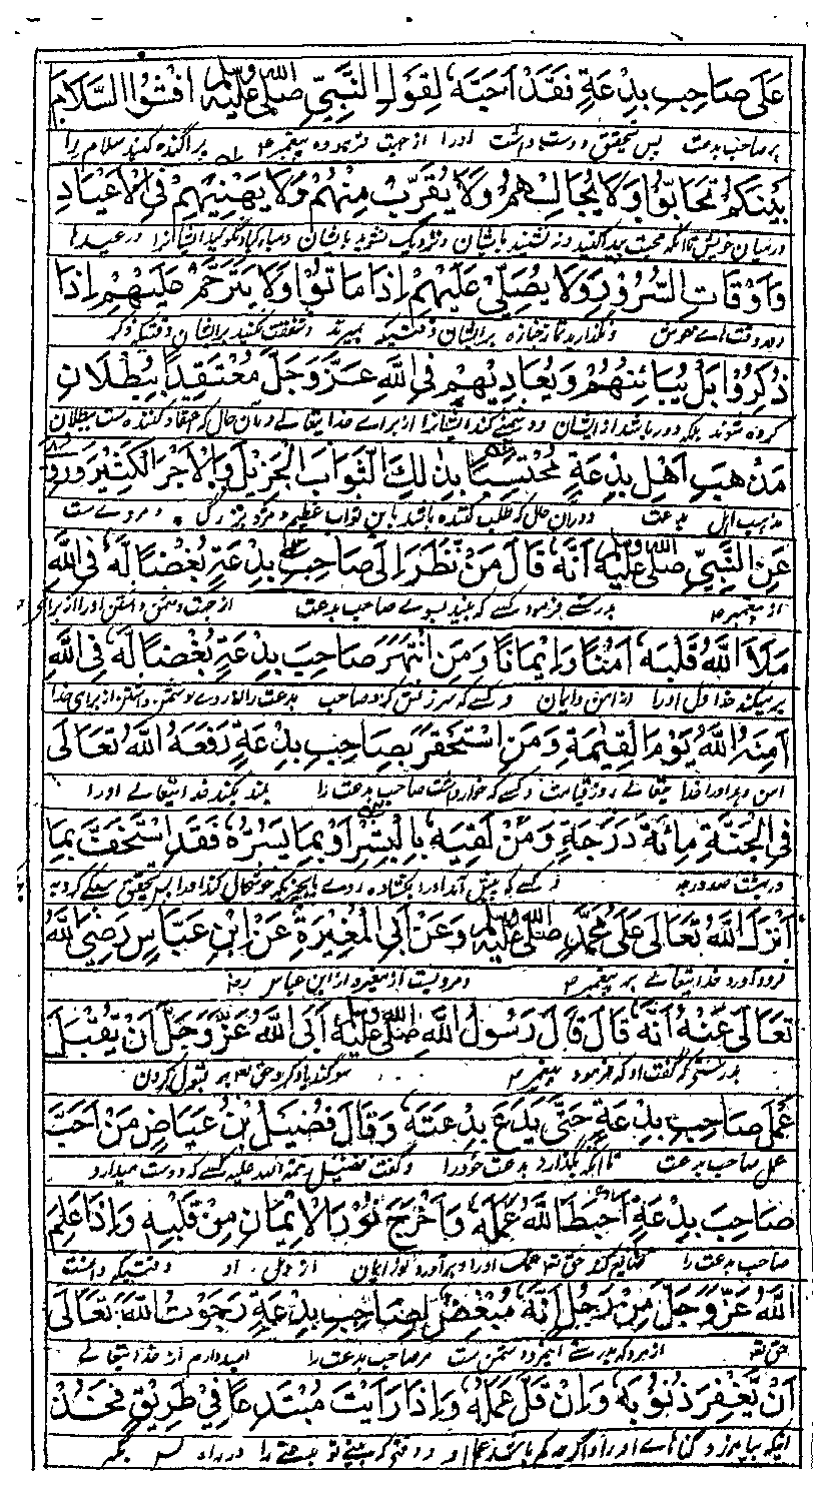 عَلَى صَاحِبِ بِدْعَةٍ فَقَدْ اَحَبَّهٗ لِقَوْلِ النَّبِيِّ صَلَّى اللهُ عَلَيْهِ وَسَلَّمَ اَفْشُوا السَّلَامَ
بر صاحب بدعت پس بتحقیق دوست داشت اورا از جهت فرموده پیغمبر ؐ پراگنده کنید سلام را
بَيْنَكُمْ تَحَابُّوْا وَلَا يُجَالِسُهُمْ وَلَا يُقَرِّبُ مِنْهُمْ وَلَا يُهَنِّيْهِمْ فِي الْاَعْيَادِ
درمیان خویش تا آنکه محبت پیدا کنید و نه نشینید با ایشان و نزدیک نشوید با ایشان و مبارکباد نگوئید ایشانرا در عیدها
وَاَوْقَاتِ السُّرُوْرِ وَلَا يُصَلِّيْ عَلَيْهِمْ اِذَا مَاتُوْا وَلَا يَتَرَحَّمُ عَلَيْهِمْ اِذَا
و در وقت هاے خوش و نگذارید نماز جنازه بر ایشان وقتیکه بمیرند و شفقت نکنید بر ایشان وقتیکه ذکر
ذُكِرُوْا بَلْ يُبَائِنُهُمْ وَيُعَادِيْهِمْ فِي اللهِ عَزَّ وَجَلَّ مُعْتَقِدًا بِبُطْلَانِ
کرده شوند بلکه دور باشد از ایشان و دشمنے کند ایشانرا از براے خدایتعالے و در آن حال که اعتقاد کننده ست ببطلان
مَذْهَبِ اَهْلِ بِدْعَةٍ مُحْتَسِبًا بِذٰلِكَ الثَّوَابَ الْجَزِيْلَ وَالْاَجْرَ الْكَثِيْرَ وَرُوِيَ
مذهب اهل بدعت و در آن حال که طلب کننده باشد باین ثواب عظیم و مزد بزرگ و مروے ست
عَنِ النَّبِيِّ صَلَّى اللهُ عَلَيْهِ وَسَلَّمَ اَنَّهٗ قَالَ مَنْ نَّظَرَ اِلٰى صَاحِبِ بِدْعَةٍ بُغْضًا لَّهٗ فِي اللهِ
از پیغمبر ؐ بدرستے فرمود کسے که بیند بسوے صاحب بدعت از جهت دشمن داشتن اورا از براے
مَلَاَ اللهُ قَلْبَهٗ اَمْنًا وَّاِيْمَانًا وَمَنِ انْتَهَرَ صَاحِبَ بِدْعَةٍ بُغْضًا لَّهٗ فِي اللهِ
پر میکند خدا دل اورا از امن و ایمان و کسے که سرزنش کرد صاحب بدعت را از روے دشمن داشتن از براے خدا
اٰمَنَهُ اللهُ يَوْمَ الْقِيٰمَةِ وَمَنِ اسْتَحْقَرَ بِصَاحِبِ بِدْعَةٍ رَفَعَهُ اللهُ تَعَالٰى
امن دهد اورا خدایتعالے روز قیامت و کسے که خوار داشت صاحب بدعت را بلند میکند خدایتعالے اورا
فِي الْجَنَّةِ مِائَةَ دَرَجَةٍ وَمَنْ لَّقِيَهٗ بِالْبِشْرِ اَوْ بِمَا يَسُرُّهٗ فَقَدِ اسْتَخَفَّ بِمَا
در بهشت صد درجه و کسے که پیش آمد اورا بکشاده روے یا بچیزیکه خوشحال کند اورا پس تحقیق سبکے کرد به
اَنْزَلَ اللهُ تَعَالٰى عَلٰى مُحَمَّدٍ صَلَّى اللهُ عَلَيْهِ وَسَلَّمَ وَعَنْ اَبِي الْمُغِيْرَةِ عَنِ ابْنِ عَبَّاسٍ رَضِيَ اللهُ
فرود آورد خدایتعالے بر پیغمبر ؐ و مرویست از مغیره از ابن عباس رض
تَعَالٰى عَنْهُ اَنَّهٗ قَالَ قَالَ رَسُوْلُ اللهِ صَلَّى اللهُ عَلَيْهِ وَسَلَّمَ اَبَى اللهُ عَزَّ وَجَلَّ اَنْ يَّقْبَلَ
بدرستیکه گفت او که فرمود پیغمبر ؐ سوگند یاد کرد حق تعالے به قبول کردن
عَمَلَ صَاحِبِ بِدْعَةٍ حَتّٰى يَدَعَ بِدْعَتَهٗ وَقَالَ فُضَيْلُ بْنُ عِيَاضٍ مَنْ اَحَبَّ
عمل صاحب بدعت تا آنکه بگذارد بدعت خود را و گفت فضیل رحمة الله علیه کسے که دوست میدارد
صَاحِبَ بِدْعَةٍ اَحْبَطَ اللهُ عَمَلَهٗ وَاَخْرَجَ نُوْرَ الْاِيْمَانِ مِنْ قَلْبِهٖ وَاِذَا عَلِمَ
صاحب بدعت را ضائع کند حق تعالے عمل اورا و برآورد نور ایمان از دل او و وقتیکه دانست
اللهُ عَزَّ وَجَلَّ مِنْ رَّجُلٍ اَنَّهٗ مُبْغِضٌ لِصَاحِبِ بِدْعَةٍ رَجَوْتُ اللهَ تَعَالٰى
حق تعالے از مرد که بدرستے آنمرد دشمن ست مر صاحب بدعت را امیدوارم از خدایتعالے
اَنْ يَّغْفِرَ ذُنُوْبَهٗ وَاِنْ قَلَّ عَمَلُهٗ وَاِذَا رَاَيْتَ مُبْتَدِعًا فِيْ طَرِيْقٍ فَخُذْ
اینکه بیامرزد گناهان اورا و اگرچه کم باشد عمل او و وقتیکه بینے تو بدعتے را در راه پس بگیر